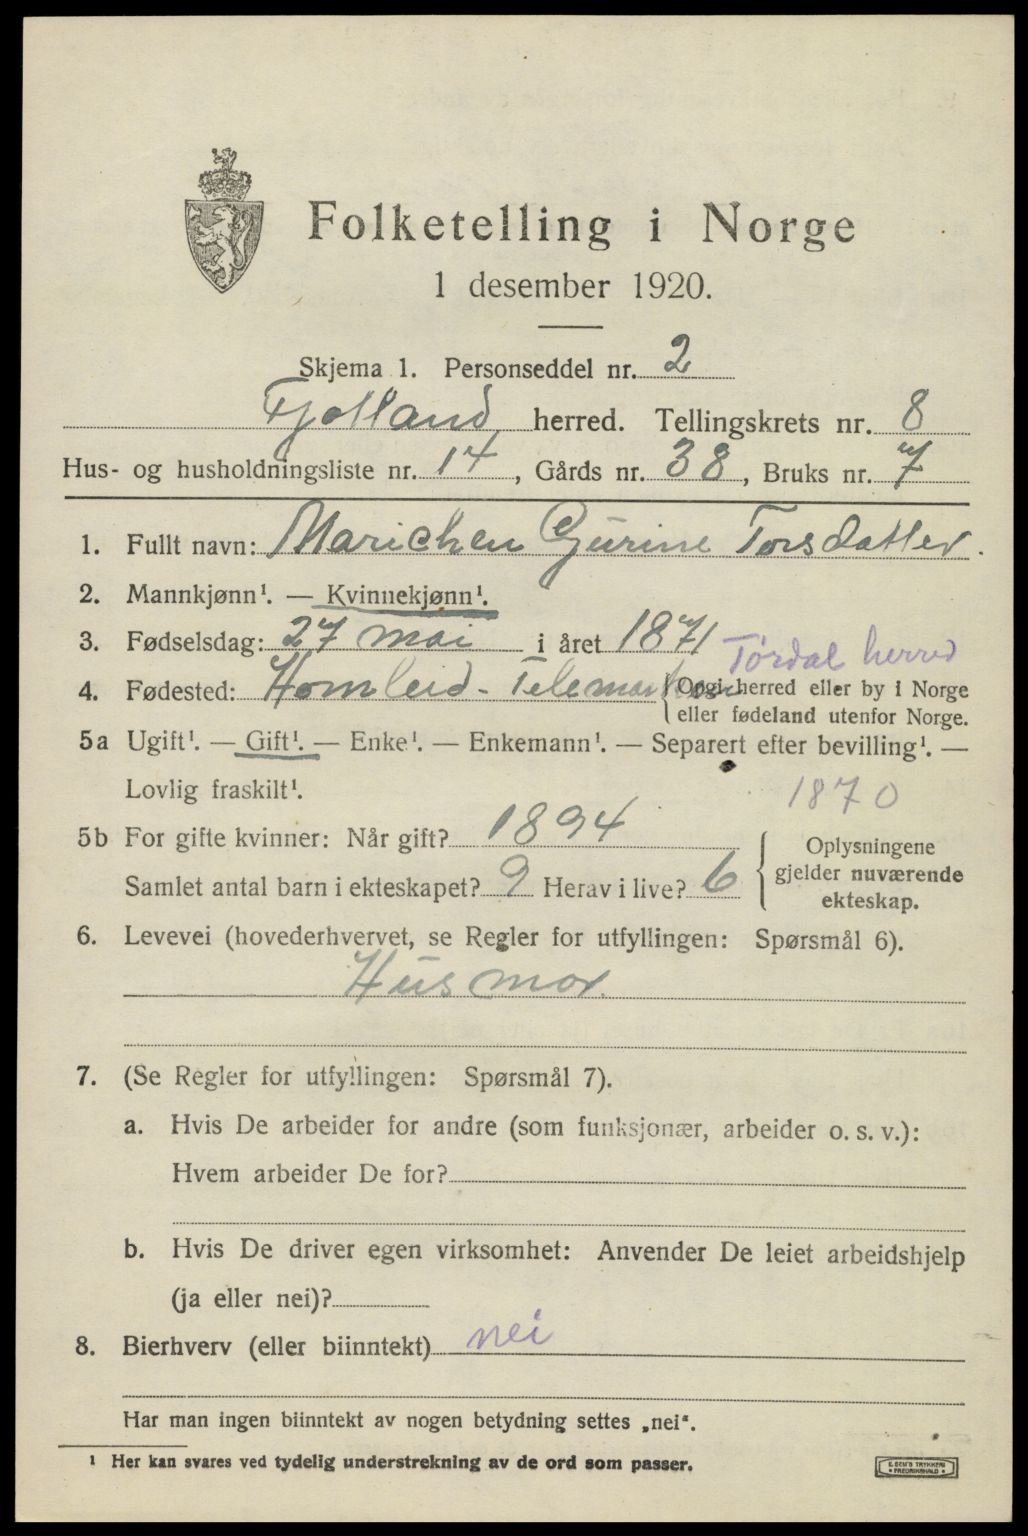 Folketelling i Norge
1 desember 1920.
Skjema 1. Personseddel nr. 2
Fjotland herred. Tellingskrets nr. 8
Hus- og husholdningsliste nr. 14, Gårds nr. 38, Bruks nr. 7
1. Fullt navn: Marichen Gurine Torsdatter.
2. Mannkjønn¹. — Kvinnekjønn¹.
3. Fødselsdag: 27 mai i året 1871
Tørdal herred
4. Fødested: Homleid - Telemarken {Opgi herred eller by i Norge
eller fødeland utenfor Norge.
5a Ugift¹. — Gift¹. — Enke¹. — Enkemann¹. — Separert efter bevilling¹. —
Lovlig fraskilt¹.
1870
5b For gifte kvinner: Når gift? 1894
Samlet antal barn i ekteskapet? 9 Herav i live? 6
{ Oplysningene
gjelder nuværende
ekteskap.
6. Levevei (hovederhvervet, se Regler for utfyllingen: Spørsmål 6).
Husmor.
7. (Se Regler for utfyllingen: Spørsmål 7).
a. Hvis De arbeider for andre (som funksjonær, arbeider o. s. v.):
Hvem arbeider De for?
b. Hvis De driver egen virksomhet: Anvender De leiet arbeidshjelp
(ja eller nei)?
8. Bierhverv (eller biinntekt) nei
Har man ingen biinntekt av nogen betydning settes „nei“.
¹ Her kan svares ved tydelig understrekning av de ord som passer.
E. SEM'S TRYKKERI
• FREDRIKSHALD •